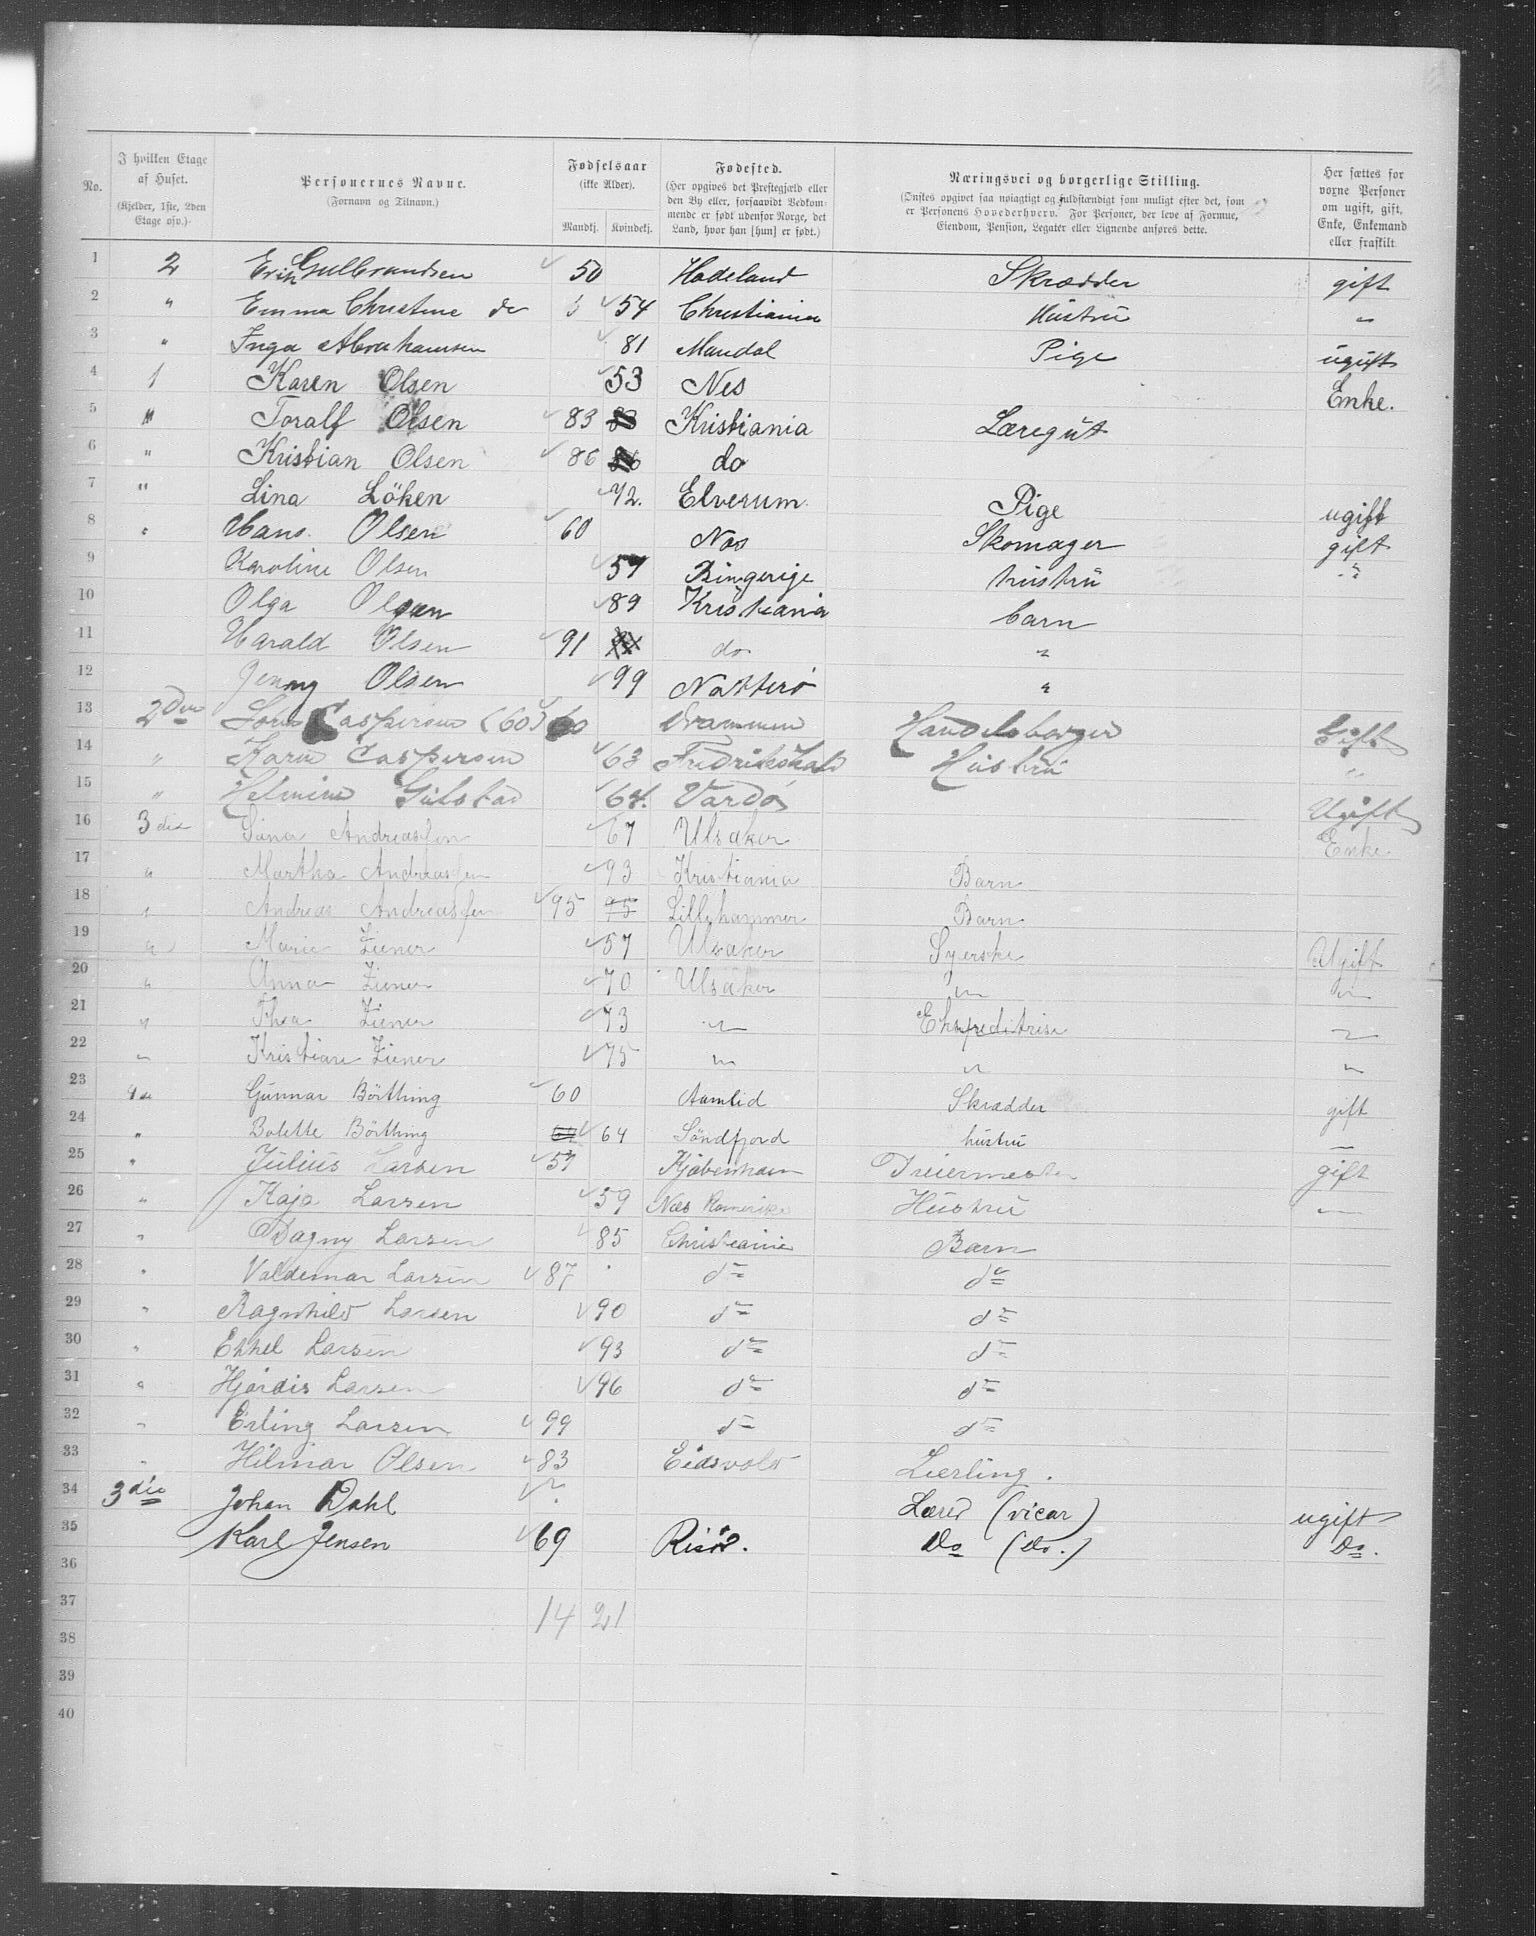 No.
I hvilken Etage af Huset. (Kjelder, 1ste, 2den Etage osv.).
Personernes Navne. (Fornavn og Tilnavn.)
Fødselsaar (ikke Alder). Mandkj. Kvindekj.
Fødested. (Her opgives det Præstegjæld eller den By eller, forsaavidt Vedkommende er født udenfor Norge, det Land, hvor han [hun] er født.)
Næringsvei og borgerlige Stilling. (Ønskes opgivet saa nøiagtigt og fuldstændigt som muligt efter det, som er Personens Hovederhverv. For Personer, der leve af Formue, Eiendom, Pension, Legater eller Lignende anføres dette.
Her sættes for voxne Personer om ugift, gift, Enke, Enkemand eller fraskilt
1 2 Erik Gulbrandsen 50 Hadeland Skrædder gift
2 " Emma Christine do 54 Christiania Hustru "
3 " Inga Abrahamsen 81 Mandal Pige ugift
4 1 Karen Olsen 53 Nes Enke.
5 " Toralf Olsen 83 Kristiania Læregut
6 " Kristian Olsen 86 do
7 " Lina Löken 72. Elverum Pige ugift
8 " Hans Olsen 60 Nas Skomager gift
9 Karoline Olsen 57 Ringerige hustru "
10 Olga Olsen 89 Kristiania barn
11 Harald Olsen 91 do "
12 Jenny Olsen 99 Nøtterø "
13 2den Caspersen (60) 60 Drammen Handelsborger Gift
14 " Karen Caspersen 63 Fredrikshald Hustru "
15 " Helmine Gulstad 64. Vardø Ugift
16 3die Andreassen 67 Ulsaker Enke
17 " Martha Andreassen 93 Kristiania Barn
18 " Andreas Andreassen 95 95 Lillehammer Barn
19 " Marie Ziener 57 Ulsaker Syerske Ugift
20 " Anna Ziener 70 Ulsaker " "
21 " Thea Ziener 73 " Ekspeditrise "
22 " Kristiane Ziener 75 " " "
23 4de Gunnar Börthing 60 Aamlid Skrædder gift
24 " Bolette Börthing 64 64 Söndfjord hustru "
25 " Julius Larsen 57 Kjøbenhavn Dreiermester gift
26 " Kaja Larsen 59 Næs Romerike Hustru "
27 " Dagny Larsen 85 Christiania Barn
28 " Valdemar Larsen 87 do do
29 " Ragnhild Larsen 90 do do
30 " Ethel Larsen 93 do do
31 " Hjørdis Larsen 96 do do
32 " Erling Larsen 99 do do
33 " Hilmar Olsen 83 Eidsvold Lærling.
34 3die Johan Dahl Lærer (vicar) ugift
35 Karl Jensen 69 Risør. Do (do.) Do.
36
37 14 21
38
39
40